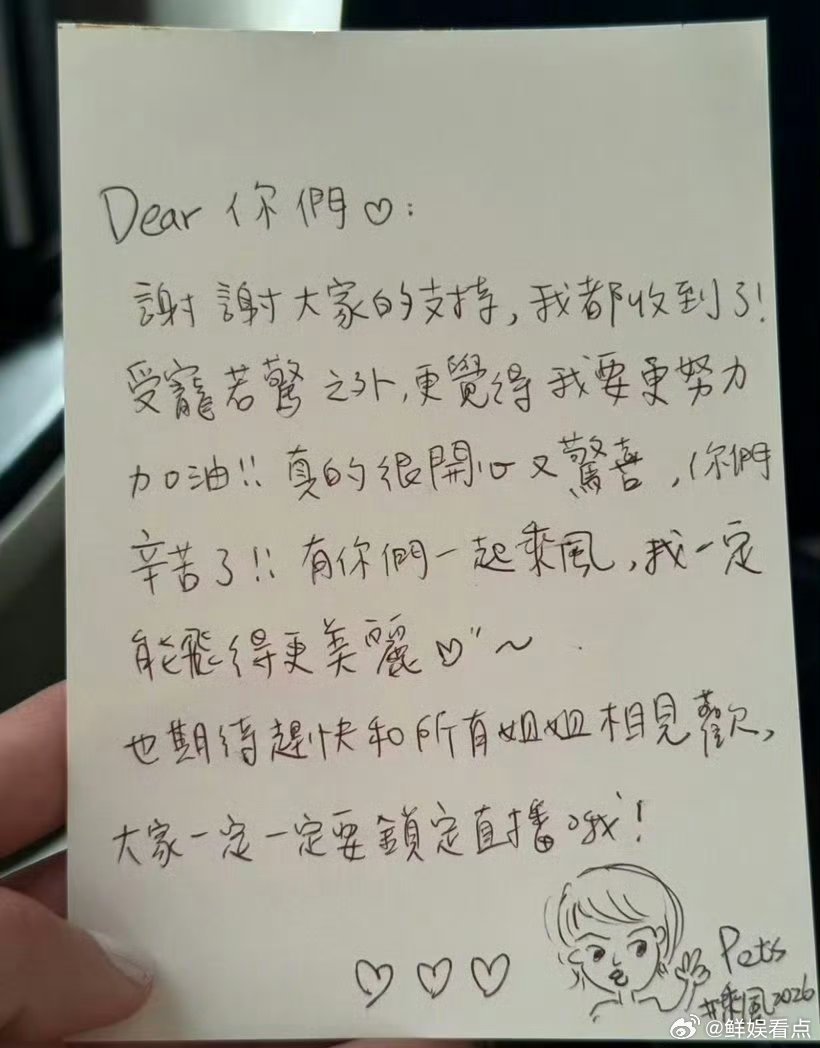 Dear 你們♡:
謝謝大家的支持,我都收到了!
受寵若驚之外,更覺得我要更努力
加油!!真的很開心又驚喜,你們
辛苦了!!有你們一起乘風,我一定
能飛得更美麗♡"~
也期待趕快和所有姐姐相見歡,
大家一定一定要鎖定直播哦!
♡♡♡
Pets
#乘風2026
@鲜娱看点